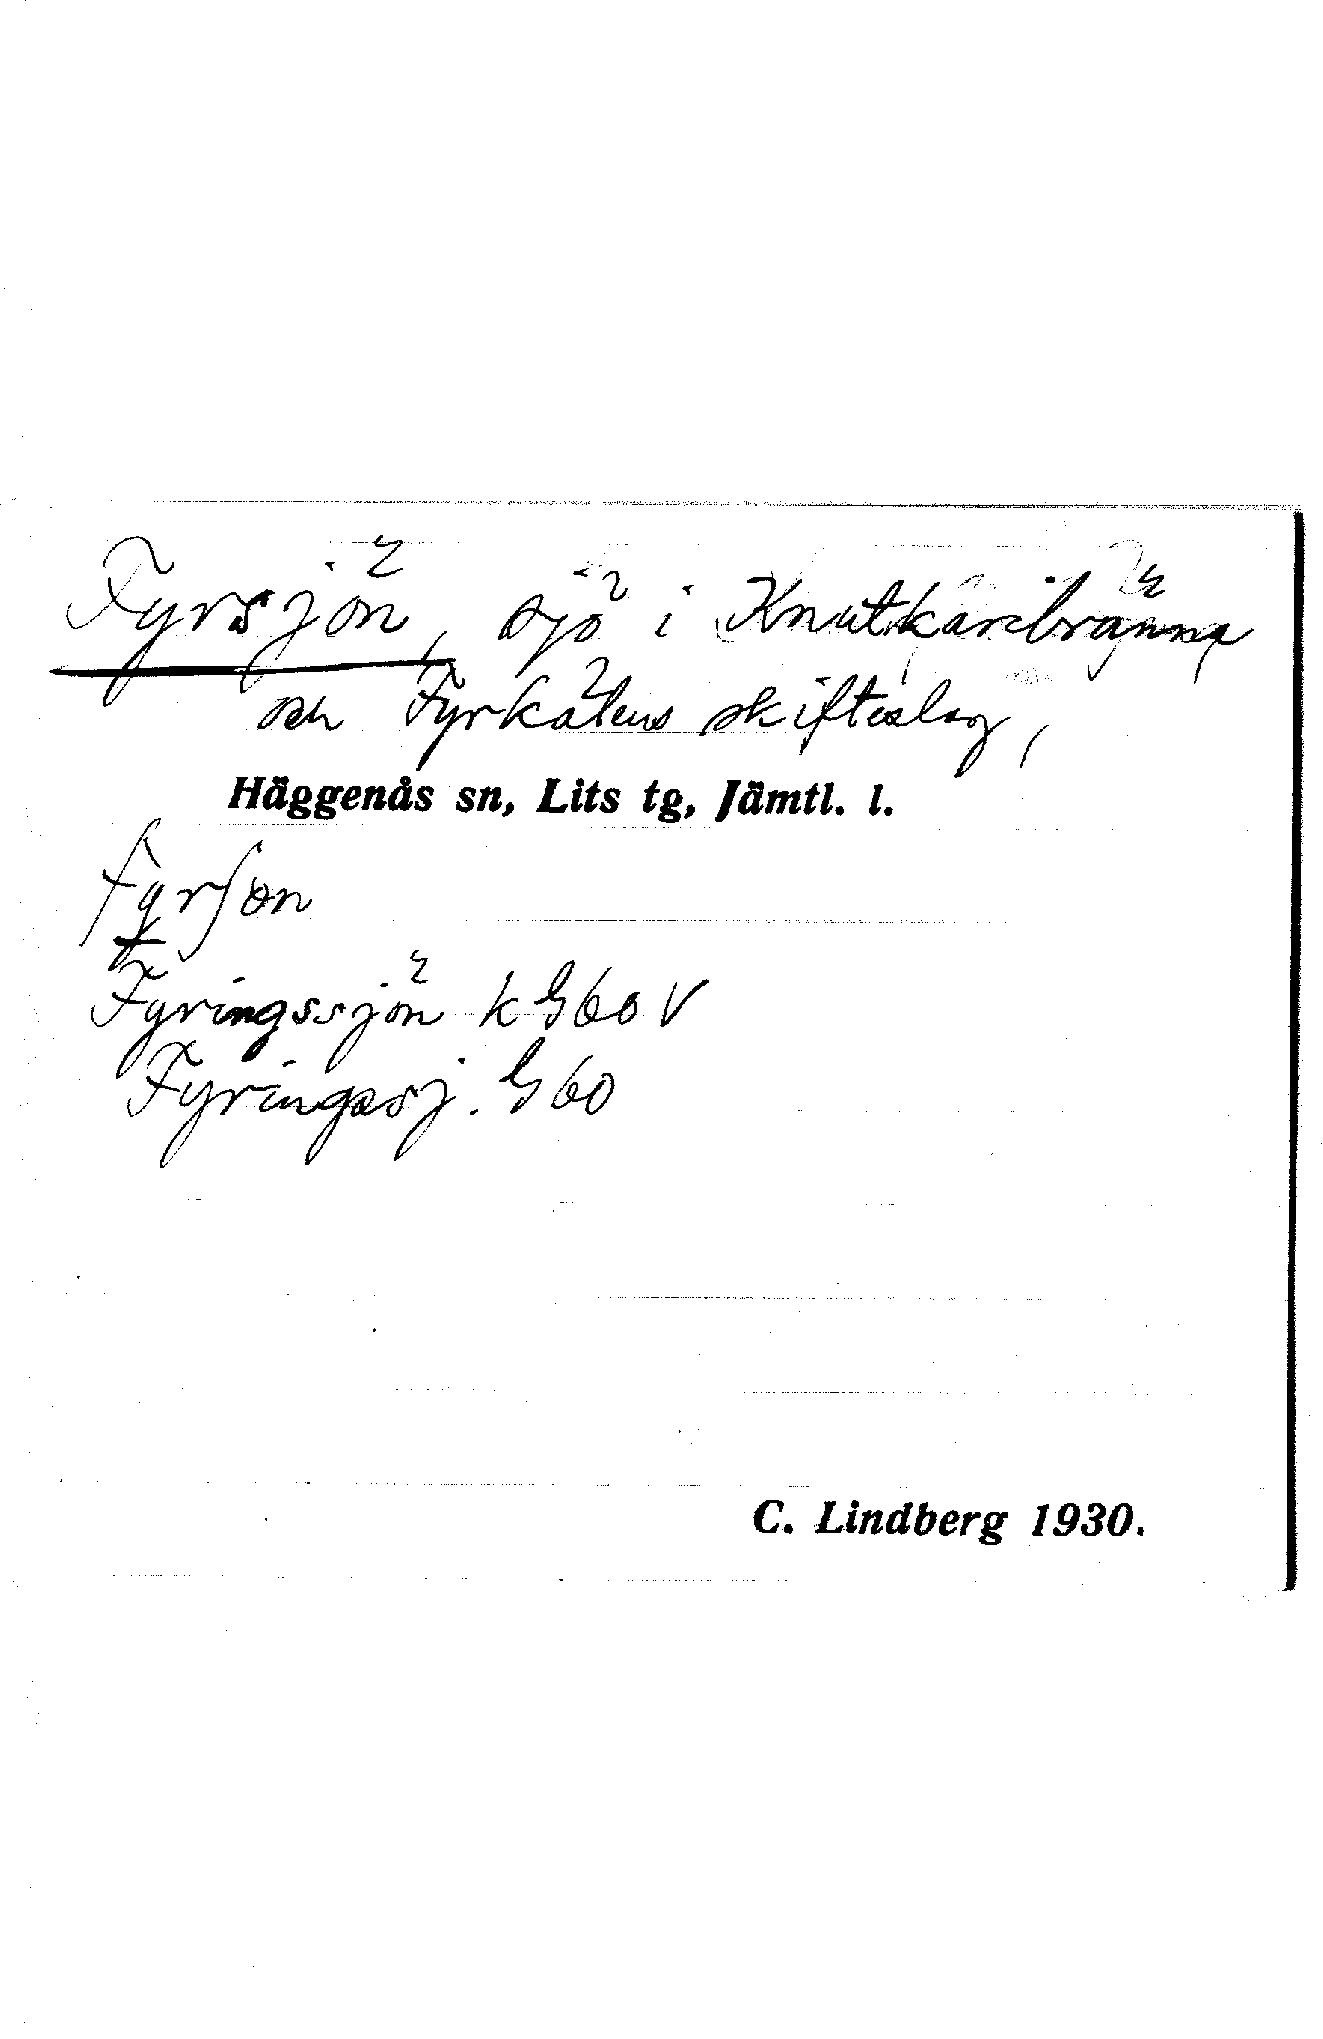 Fyrsjön, sjö i Knutkärrbränna
och Fyrkälens skifteslag,
Häggenås sn, Lits tg, Jämtl. l.
Fyringssjön k G60 V
Fyringssj. G60
C. Lindberg 1930.